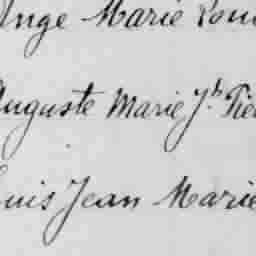 Ange Marie Loui
Auguste Marie Jh Pier
ouis Jean Marie